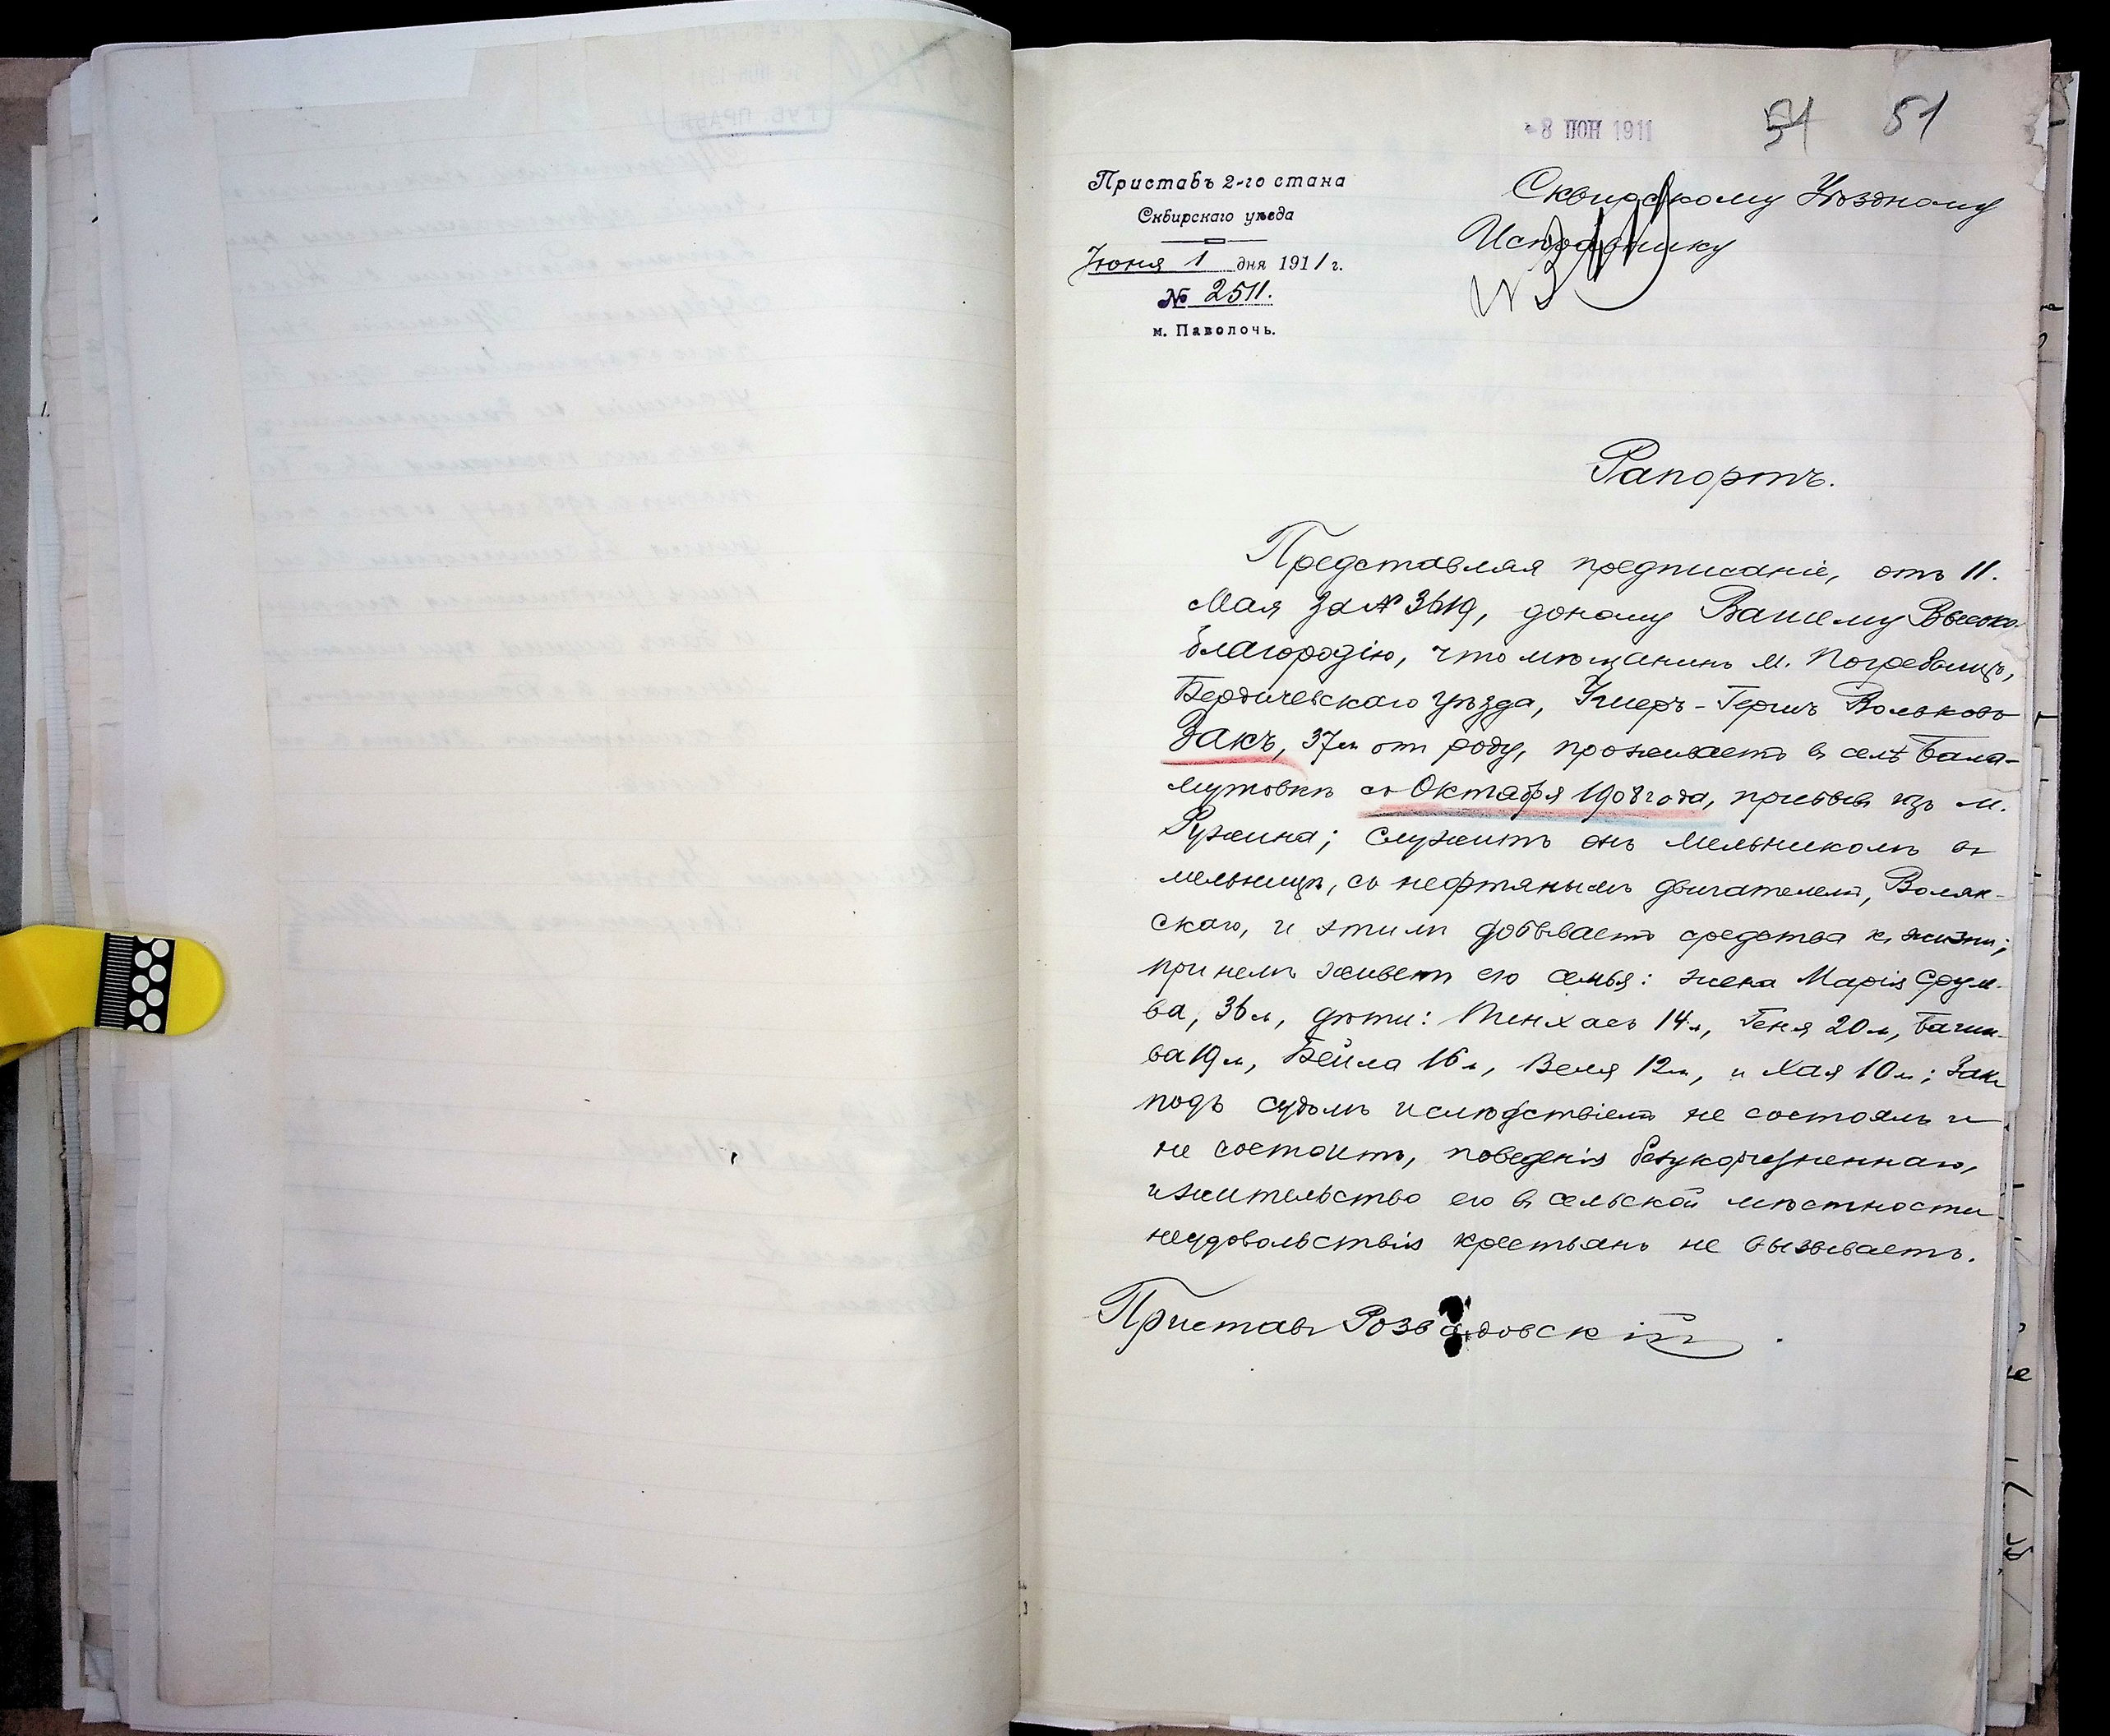 - 8 ІЮН 1911
51 51
Приставъ 2-го стана
Сквирскаго уѣзда
Іюня 1 дня 1911 г.
№ 2511.
м. Паволочь.
Сквирскому Уѣздному
Исправнику
Рапортъ.
Представляя предписаніе, отъ 11.
Мая за № 3619, доношу Вашему Высоко-
благородію, что мѣщанинъ м. Погребищъ,
Бердичевскаго уѣзда, Гершъ Вольковъ
Закъ, 37 л. отъ роду, проживаетъ въ селѣ Бала-
мутовкѣ съ Октября 1908 года, прибывъ изъ м.
Ружина; служитъ онъ мельникомъ въ
мельницѣ, съ нефтянымъ двигателемъ, Воляк-
скаго, и этимъ добываетъ средства къ жизни;
при немъ живетъ его семья: жена Марія Срул-
ва, 36 л, дѣти: Пенхасъ 14 л, Геня 20 л,
ва 19 л, Бейла 16 л, Веля 12 л, и Хая 10 л; Закъ
подъ судомъ и слѣдствіемъ не состоялъ и
не состоитъ, поведенія безукоризненнаго,
и жительство его въ сельской мѣстности
неудовольствія крестьянъ не вызываетъ.
Приставъ Розвадовскій